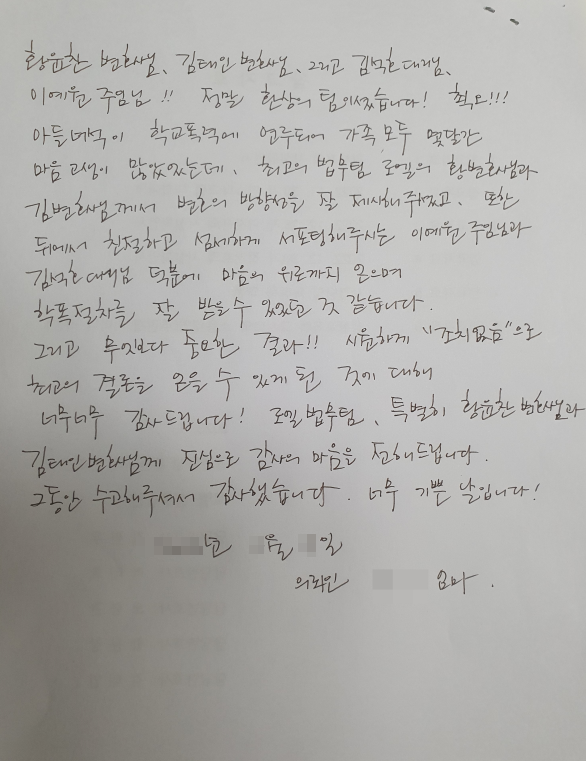 황윤찬 변호사님, 김태인 변호사님, 그리고 김석호 대리님,
이예원 주임님 !! 정말 환상의 팀이셨습니다! 최고!!!
아들녀석이 학교폭력에 연루되어 가족 모두 몇달간
마음고생이 많았었는데, 최고의 법무팀 로엘의 황변호사님과
김변호사님께서 변호의 방향성을 잘 제시해주셨고, 또한
뒤에서 친절하고 섬세하게 서포팅해주시는 이예원 주임님과
김석호 대리님 덕분에 마음의 위로까지 얻으며
학폭절차를 잘 밟을 수 있었던 것 같습니다.
그리고 무엇보다 중요한 결과!! 시원하게 "조치없음"으로
최고의 결론을 얻을 수 있게 된 것에 대해
너무너무 감사드립니다! 로엘 법무팀, 특별히 황윤찬 변호사님과
김태인변호사님께 진심으로 감사의 마음을 전해드립니다.
그동안 수고해주셔서 감사했습니다. 너무 기쁜 날입니다!
년 월 일
의뢰인 엄마.